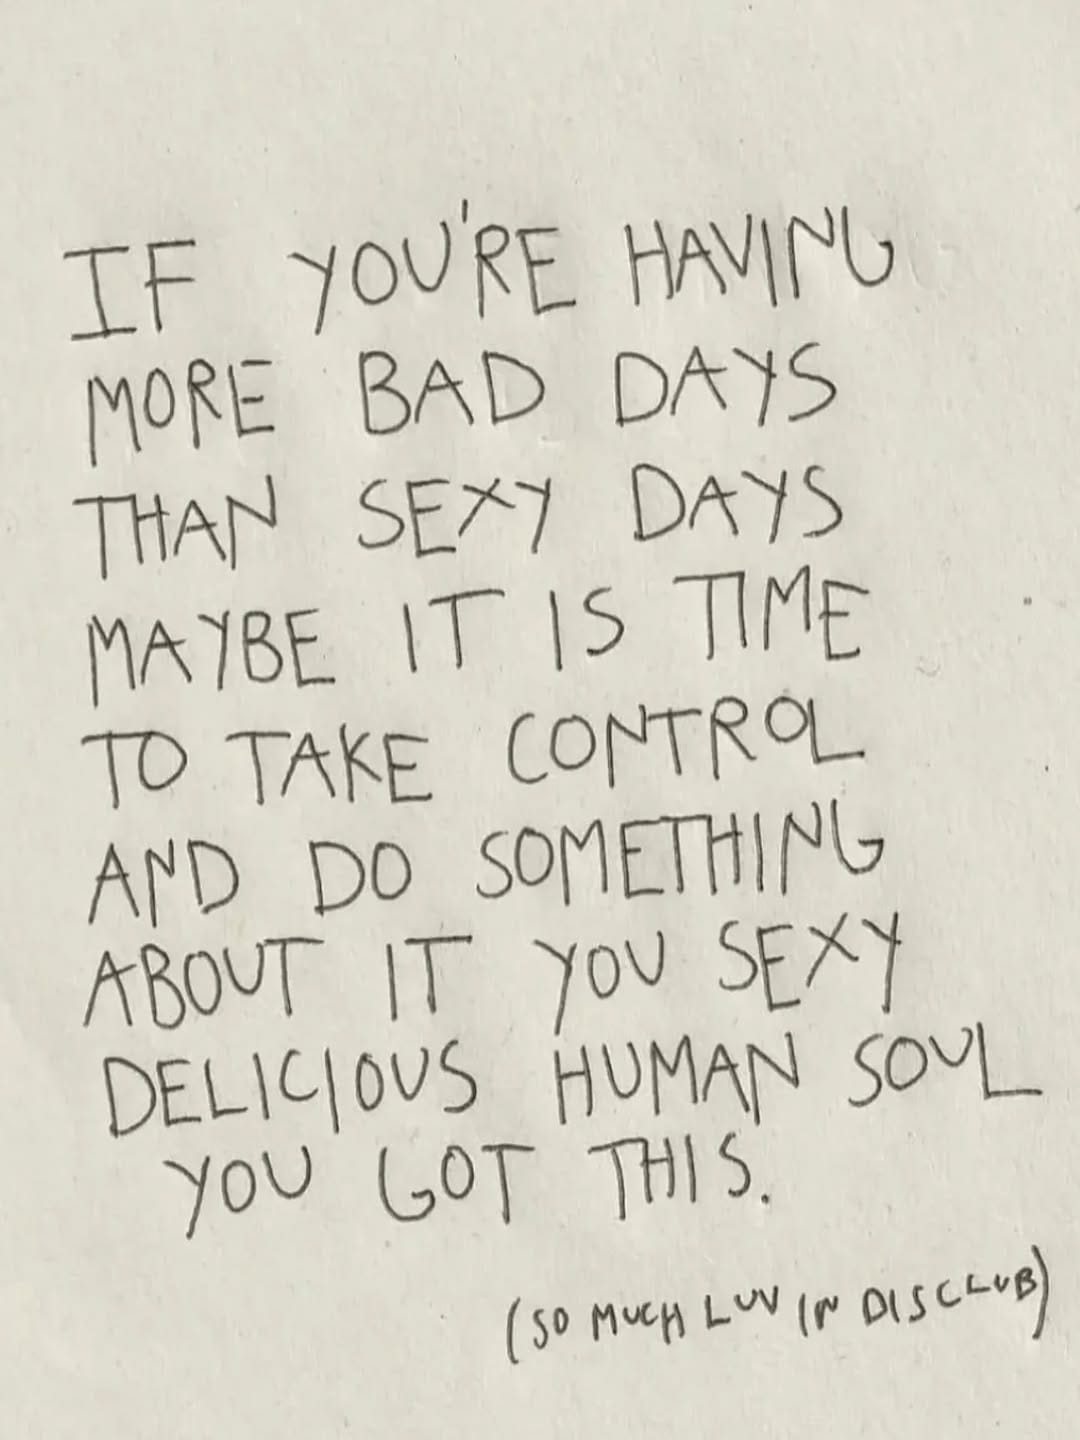 IF YOU'RE HAVING
MORE BAD DAYS
THAN SEXY DAYS
MAYBE IT IS TIME
TO TAKE CONTROL
AND DO SOMETHING
ABOUT IT YOU SEXY
DELICIOUS HUMAN SOUL
YOU GOT THIS.
(SO MUCH LUV IN DISCLUB)